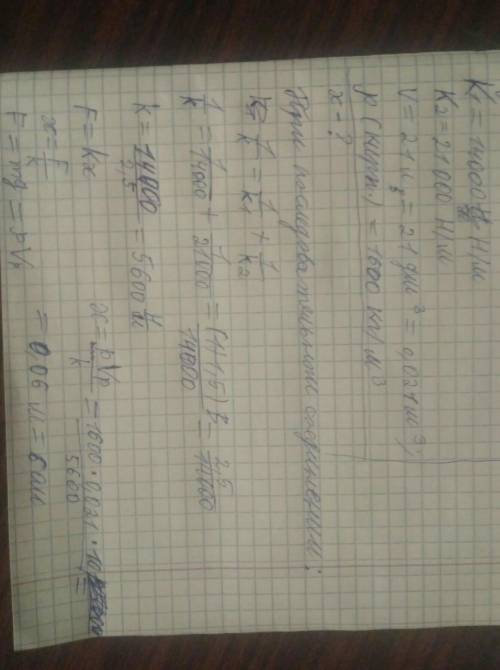 K₁ = 14000 Н/м
K₂ = 21000 Н/м
V = 21 л = 21 дм³ = 0,021 м³
ρ (кирп.) = 1600 кг/м³
x - ?
При последовательном соединении:
1/k = 1/k₁ + 1/k₂
1/k = 1/14000 + 1/21000 = = 2,5/14000
k = 14000/2,5 = 5600 Н/м
F = kx
x = F/k
F = mg = ρVg
x = ρVg/k = 1600 · 0,021 · 10/5600 =
= 0,06 м = 6 см